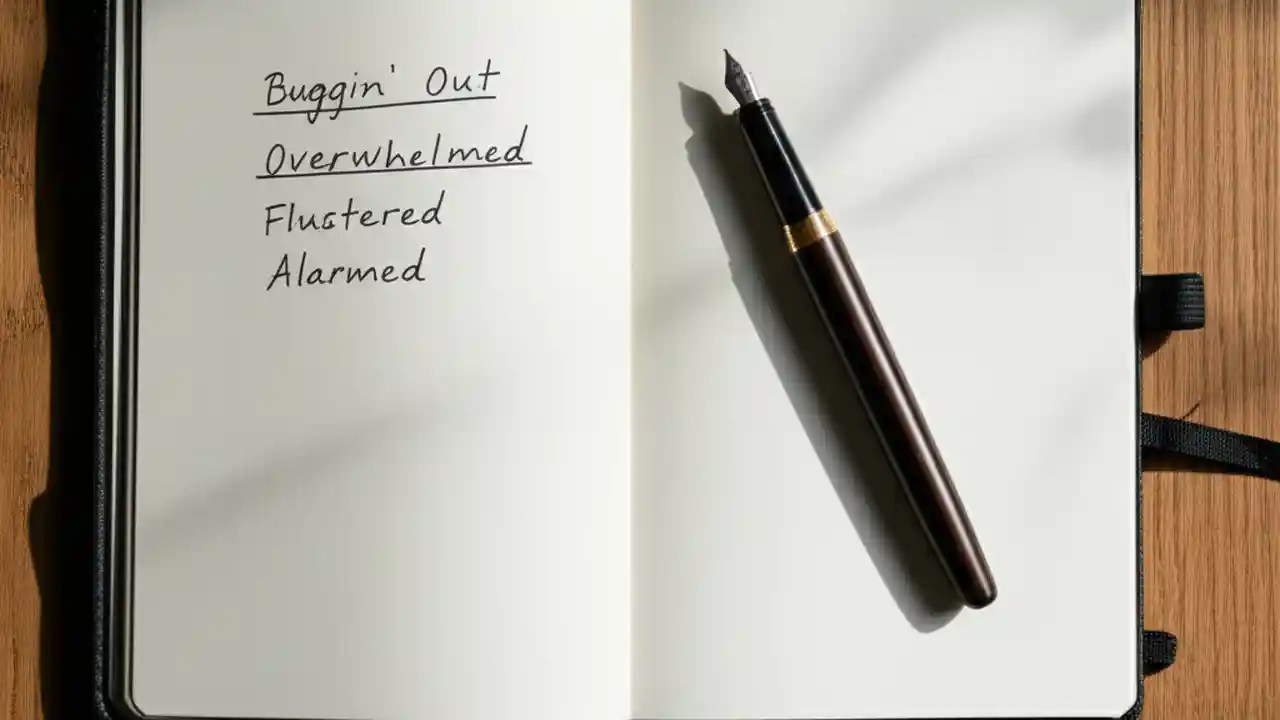 Buggin' Out
Overwhelmed
Flustered
Alarmed